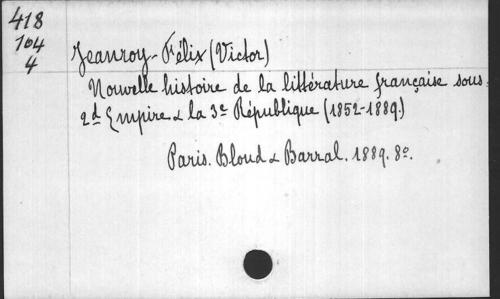 418
104
4
Jeanroy-Félix (Victor)
Nouvelle histoire de la littérature française sous
2d Empire & la 3e République (1852-1889.)
Paris. Bloud & Barral. 1889. 8o.